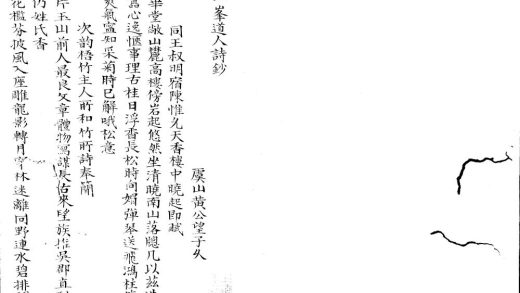 峯道人詩鈔
虞山黃公望子久
同王叔明宿陳惟允天香樓中曉起即賦
華堂敞山麓高樓傍岩起悠然坐清曉南山落牕几以茲
心逸愜事理古桂日浮香長松時向媚彈琴送飛鴻柱
爽氣寧知采菊時已解哦松意
次韵梧竹主人所和竹所詩奉簡
玉山前人最良文章體物謀長古來望族推吳郡直
姓氏香
花檻芬披風入座雕龍影轉月穿林迷離向野連水碧排